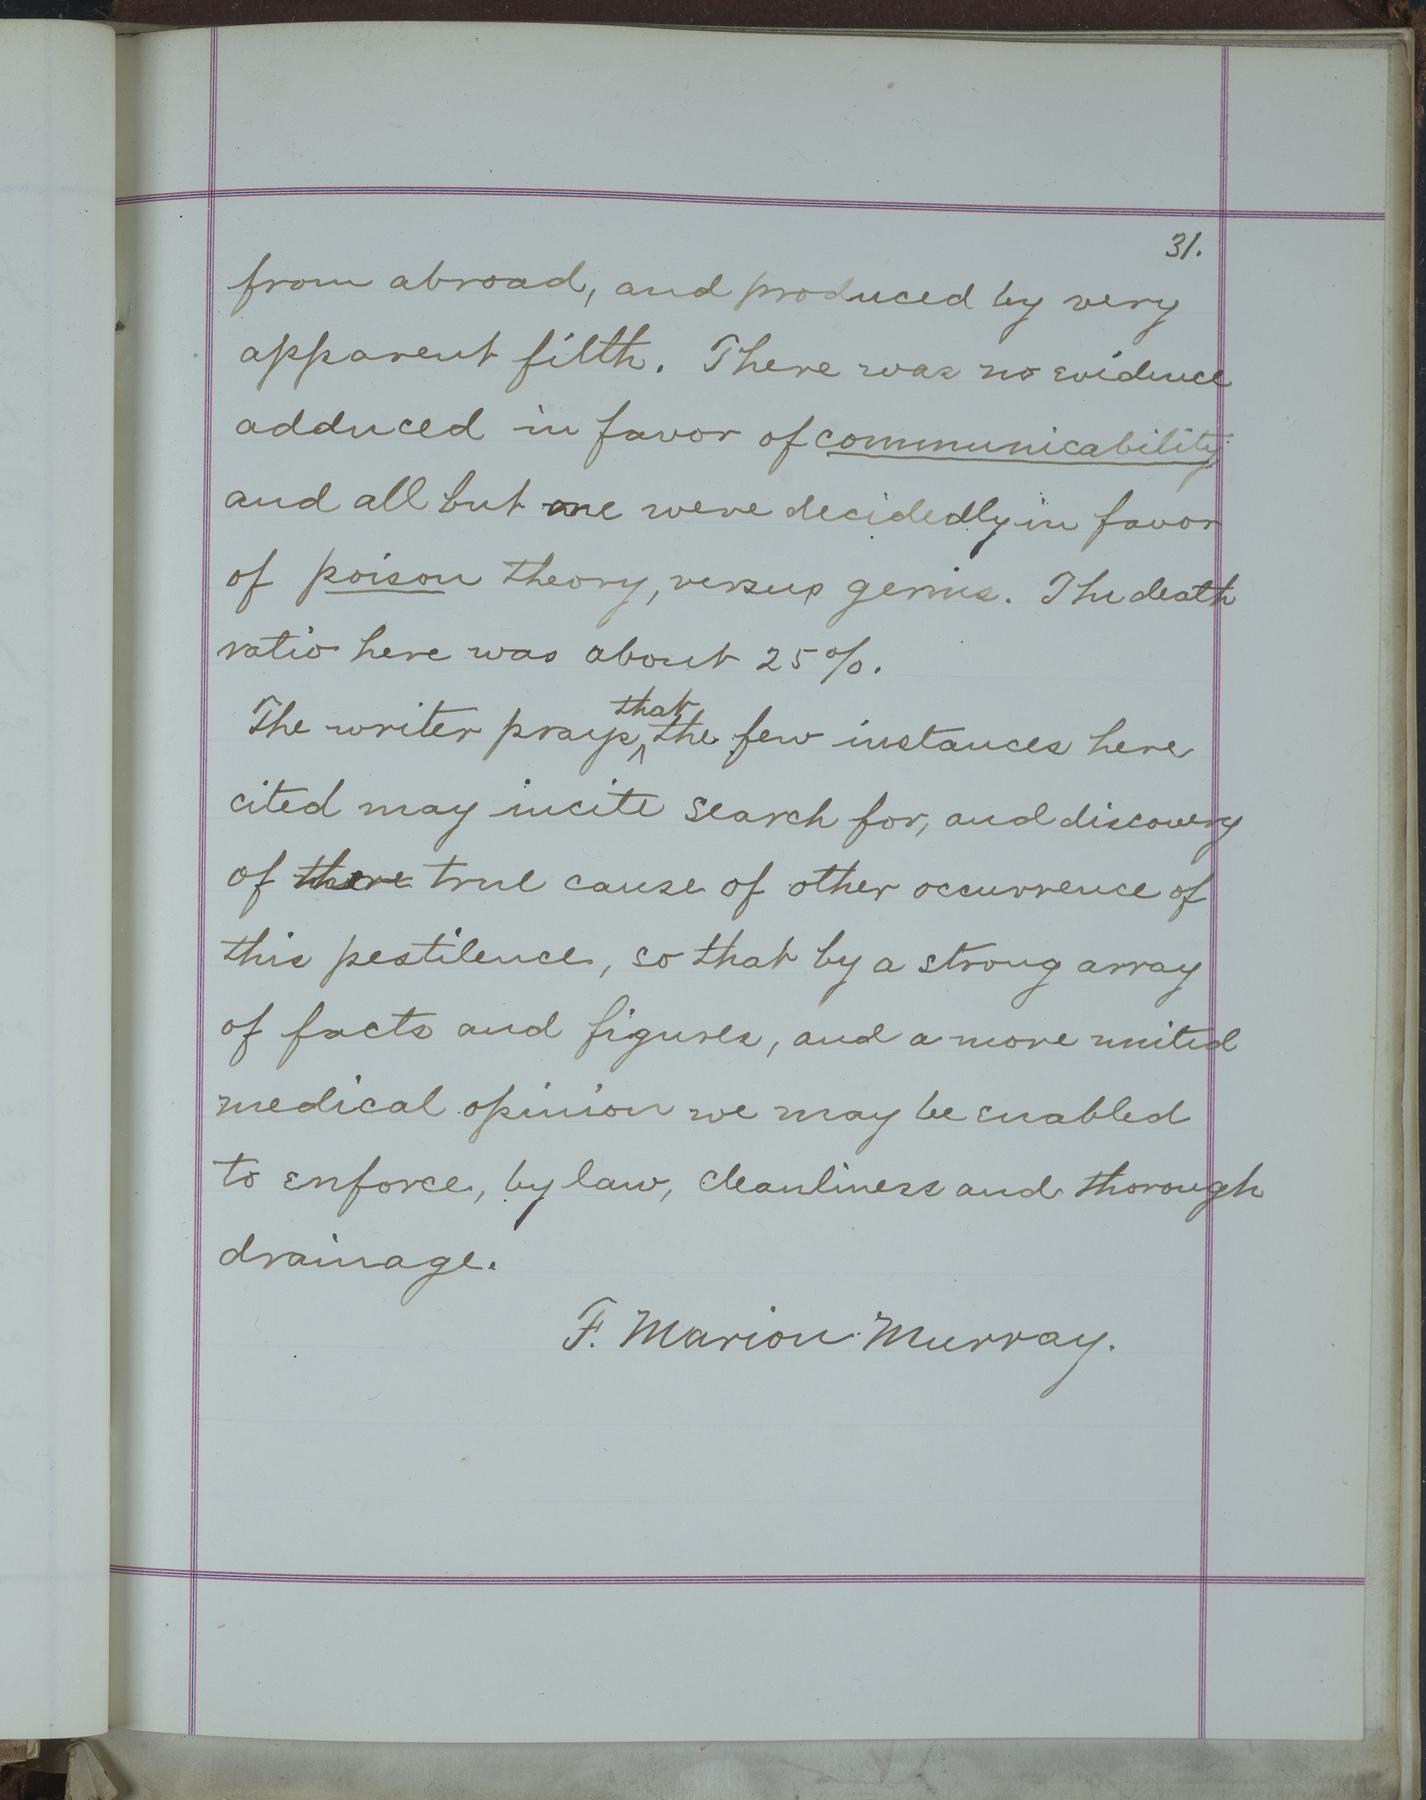 31.
from abroad, and produced by very
apparent filth. There was no evidence
adduced in favor of communicability
and all but one were decidedly in favor
of poison theory, versus germs. The death
ratio here was about 25%.
The writer prays that the few instances here
cited may incite search for, and discovery
of there true cause of other occurrence of
this pestilence, so that by a strong array
of facts and figures, and a more united
medical opinion we may be enabled
to enforce, by law, cleanliness and thorough
drainage.
F. Marion Murray.